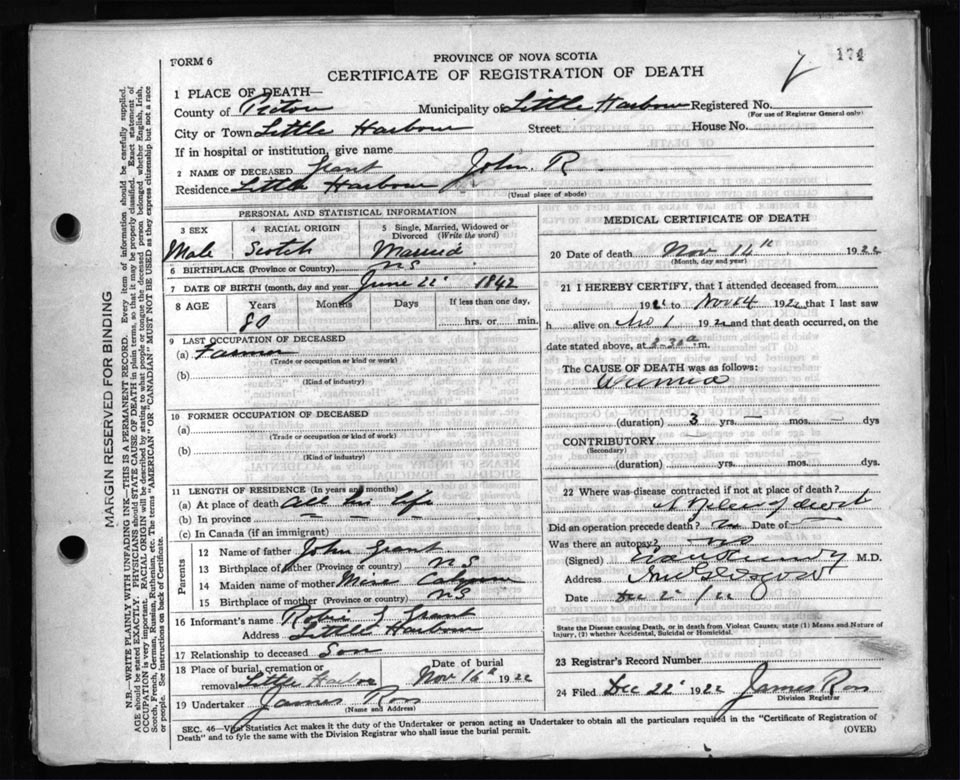 174
FORM 6
PROVINCE OF NOVA SCOTIA
CERTIFICATE OF REGISTRATION OF DEATH
1 PLACE OF DEATH—
County of Pictou Municipality of Little Harbour Registered No.
(For use of Registrar General only)
City or Town Little Harbour Street House No.
If in hospital or institution, give name
2 NAME OF DECEASED Grant John. R
Residence Little Harbour
(Usual place of abode)
PERSONAL AND STATISTICAL INFORMATION
3 SEX 4 RACIAL ORIGIN 5 Single, Married, Widowed or Divorced (Write the word)
Male Scotch Married
6 BIRTHPLACE (Province or Country) NS
7 DATE OF BIRTH (month, day and year) June 22 1842
8 AGE Years Months Days If less than one day,
80 hrs. or min.
9 LAST OCCUPATION OF DECEASED
(a) Farmer
(Trade or occupation or kind or work)
(b)
(Kind of industry)
10 FORMER OCCUPATION OF DECEASED
(a)
(Trade or occupation or kind of work)
(b)
(Kind of industry)
11 LENGTH OF RESIDENCE (In years and months)
(a) At place of death All his life
(b) In province — — —
(c) In Canada (if an immigrant)
Parents
12 Name of father John Grant
13 Birthplace of father (Province or country) NS
14 Maiden name of mother Miss
15 Birthplace of mother (Province or country) NS
16 Informant's name Grant
Address Little Harbour
17 Relationship to deceased Son
18 Place of burial, cremation or Date of burial
removal Little Harbor Nov 16th 1922
19 Undertaker James Ross
(Name and Address)
MEDICAL CERTIFICATE OF DEATH
20 Date of death Nov 14th 1922
(Month, day and year)
21 I HEREBY CERTIFY, that I attended deceased from
192 to Nov 14 1922 that I last saw
h alive on 1 1922 and that death occurred, on the
date stated above, at m.
The CAUSE OF DEATH was as follows:
(duration) 3 yrs. — mos. — dys
CONTRIBUTORY
(Secondary)
(duration) yrs. mos. dys.
22 Where was disease contracted if not at place of death?
At Place of death
Did an operation precede death? no Date of —
Was there an autopsy? no
(Signed) M.D.
Address
Date Dec 2 /22
State the Disease causing Death, or in death from Violent Causes, state (1) Means and Nature of
Injury, (2) whether Accidental, Suicidal or Homicidal.
23 Registrar's Record Number
24 Filed Dec 22 1922 James Ross
Division Registrar
SEC. 46—Vital Statistics Act makes it the duty of the Undertaker or person acting as Undertaker to obtain all the particulars required in the "Certificate of Registration of
Death" and to fyle the same with the Division Registrar who shall issue the burial permit. (OVER)
MARGIN RESERVED FOR BINDING
N.B.—WRITE PLAINLY WITH UNFADING INK—THIS IS A PERMANENT RECORD. Every item of information should be carefully supplied.
AGE should be stated EXACTLY. PHYSICIANS should STATE CAUSE OF DEATH in plain terms, so that it may be properly classified. Exact statement of
OCCUPATION is very important. RACIAL ORIGIN will be described by stating to what people or tongue the deceased person belonged whether English, Irish,
Scotch, French, German, Russian, Ruthenian, etc. The terms "AMERICAN" or "CANADIAN" MUST NOT BE USED as they express citizenship but not a race
or people. See instructions on back of Certificate.